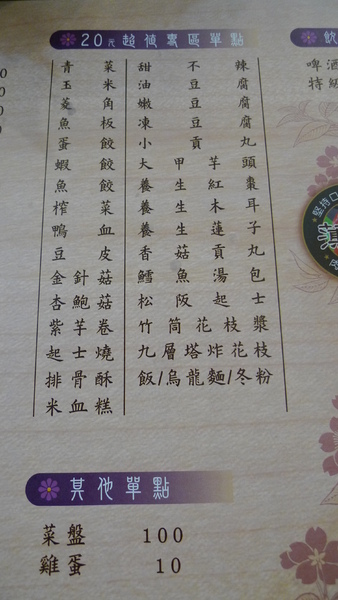 20元超值專區單點
青菜
玉米
菱角
魚板
蛋餃
蝦餃
魚餃
榨菜
鴨血
豆皮
金針菇
杏鮑菇
紫芋卷
起士燒
排骨酥
米血糕
甜不辣
油豆腐
嫩豆腐
凍豆腐
小貢丸
大甲芋頭
養生紅棗
養生木耳
養生蓮子
香菇貢丸
鱈魚湯包
松阪起士
竹筒花枝漿
九層塔炸花枝
飯/烏龍麵/冬粉
其他單點
菜盤 100
雞蛋 10
啤酒
特級
堅持口